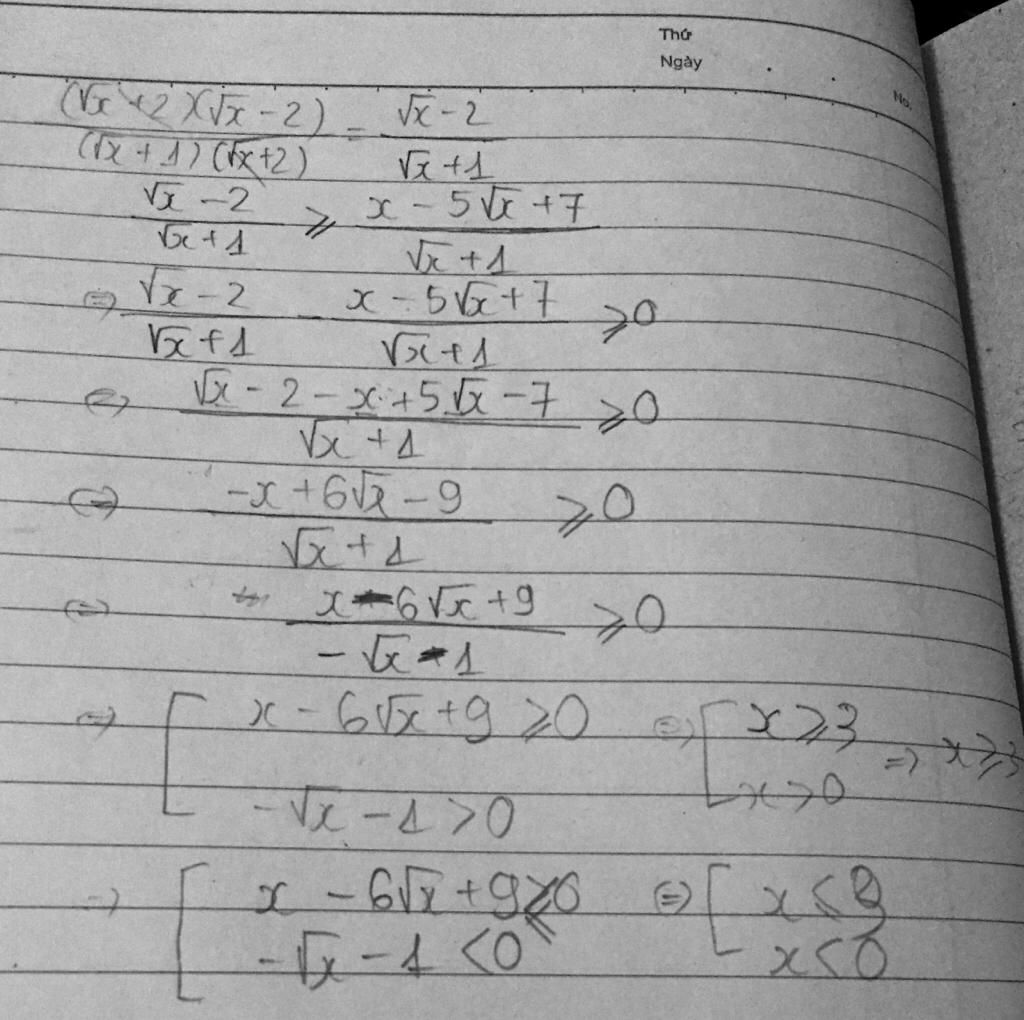 Thứ
Ngày
No.
(√x + 2)(√x - 2) / (√x + 1)(√x + 2) = √x - 2 / √x + 1
√x - 2 / √x + 1 ≥ x - 5√x + 7 / √x + 1
⇔ √x - 2 / √x + 1 - x - 5√x + 7 / √x + 1 ≥ 0
⇔ √x - 2 - x + 5√x - 7 / √x + 1 ≥ 0
⇔ -x + 6√x - 9 / √x + 1 ≥ 0
⇔ x - 6√x + 9 / -√x - 1 ≥ 0
⇒ [ x - 6√x + 9 ≥ 0 ⇔ [ x ≥ 3 ⇒ x ≥ 3
-√x - 1 > 0 x > 0
⇒ [ x - 6√x + 9 ≤ 0 ⇔ [ x ≤ 3
-√x - 1 < 0 x < 0